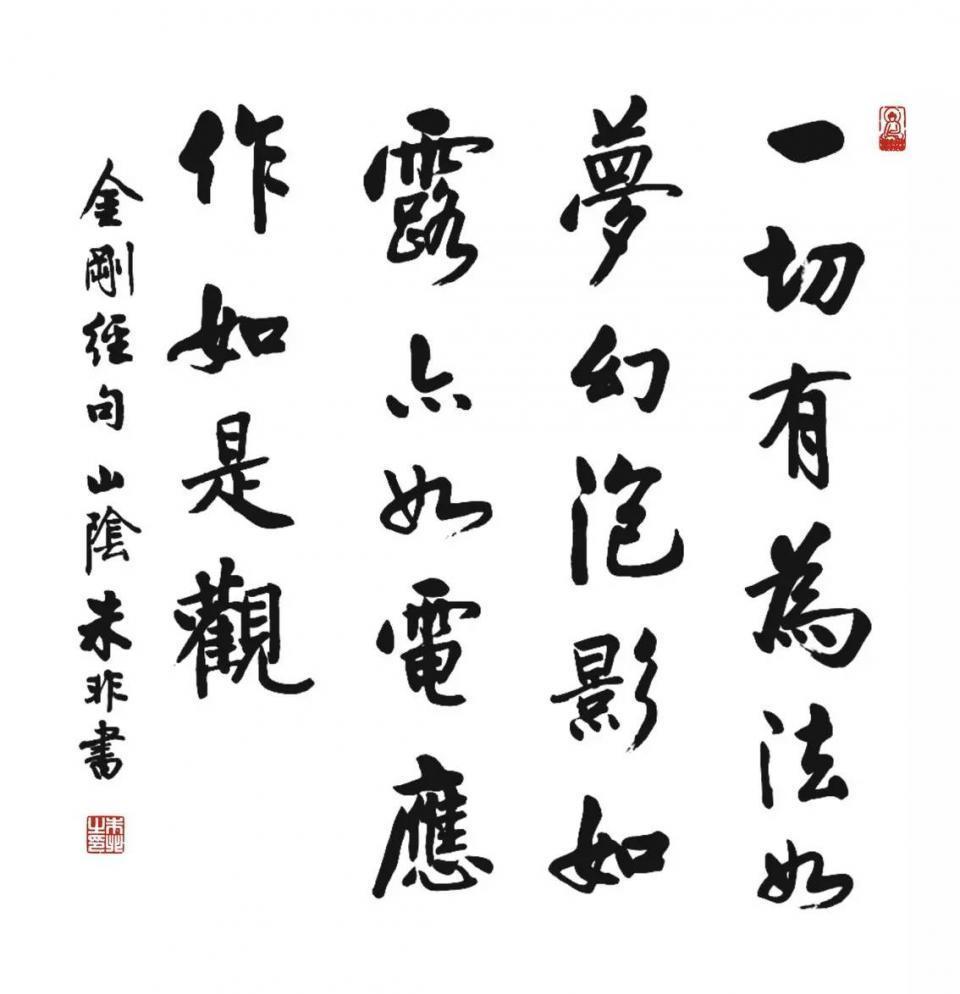 一切有為法如
夢幻泡影如
露亦如電應
作如是觀
金剛經句 山陰朱非書